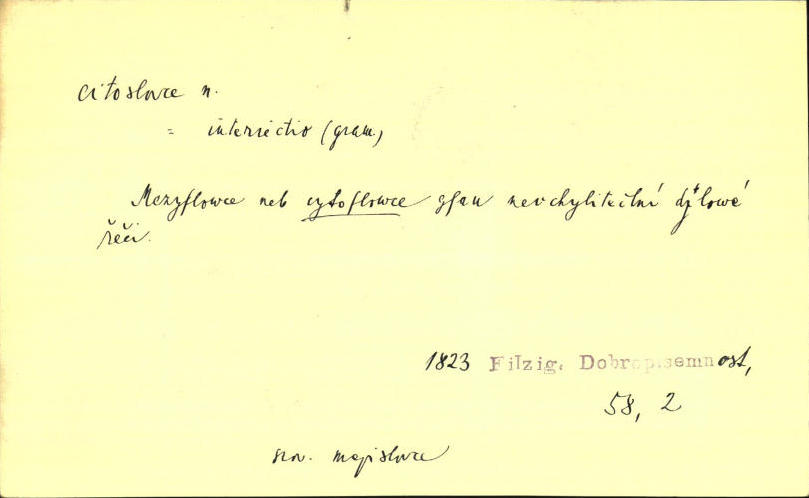 citoslovce n.
= interiectio (gram.)
Mezyslowce neb cytoslowce gsau nevchylitelní djlowé
řeči.
1823 Filzig. Dobropisemnost,
58, 2
srov. mezislovce